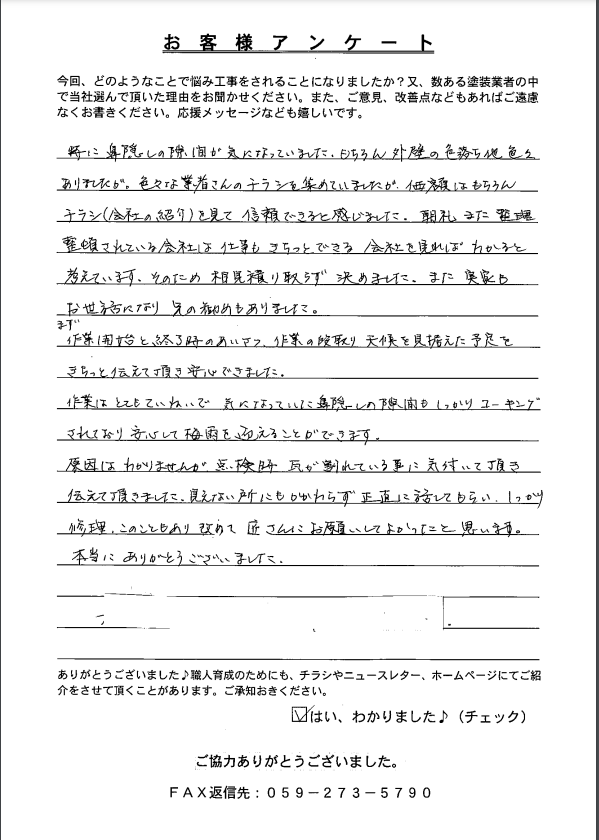 お客様アンケート
今回、どのようなことで悩み工事をされることになりましたか？又、数ある塗装業者の中
で当社選んで頂いた理由をお聞かせください。また、ご意見、改善点などもあればご遠慮
なくお書きください。応援メッセージなども嬉しいです。
特に鼻隠しの隙間が気になっていました、もちろん外壁の色落ち他色々
ありましたが。色々な業者さんのチラシを集めていましたが、価額はもちろん
チラシ(会社の紹介)を見て信頼できると感じました。朝礼また整理
整頓されている会社は仕事もきちっとできる会社を見ればわかると
考えています、そのため相見積り取らず決めました。また実家も
お世話になり兄の勧めもありました。
まず
作業開始と終了時のあいさつ、作業の段取り天候を見据えた予定を
きちっと伝えて頂き安心できました。
作業はとてもていねいで気になっていた鼻隠しの隙間もしっかりコーキング
されており安心して梅雨を迎えることができます。
原因はわかりませんが点検時瓦が割れている事に気付いて頂き
伝えて頂きました、見えない所にもかかわらず正直に話してもらい、しっかり
修理、このこともあり改めて匠さんにお願いしてよかったこと思います。
本当にありがとうございました。
ありがとうございました♪職人育成のためにも、チラシやニュースレター、ホームページにてご紹
介をさせて頂くことがあります。ご承知おきください。
☑はい、わかりました♪（チェック）
ご協力ありがとうございました。
ＦＡＸ返信先：０５９－２７３－５７９０